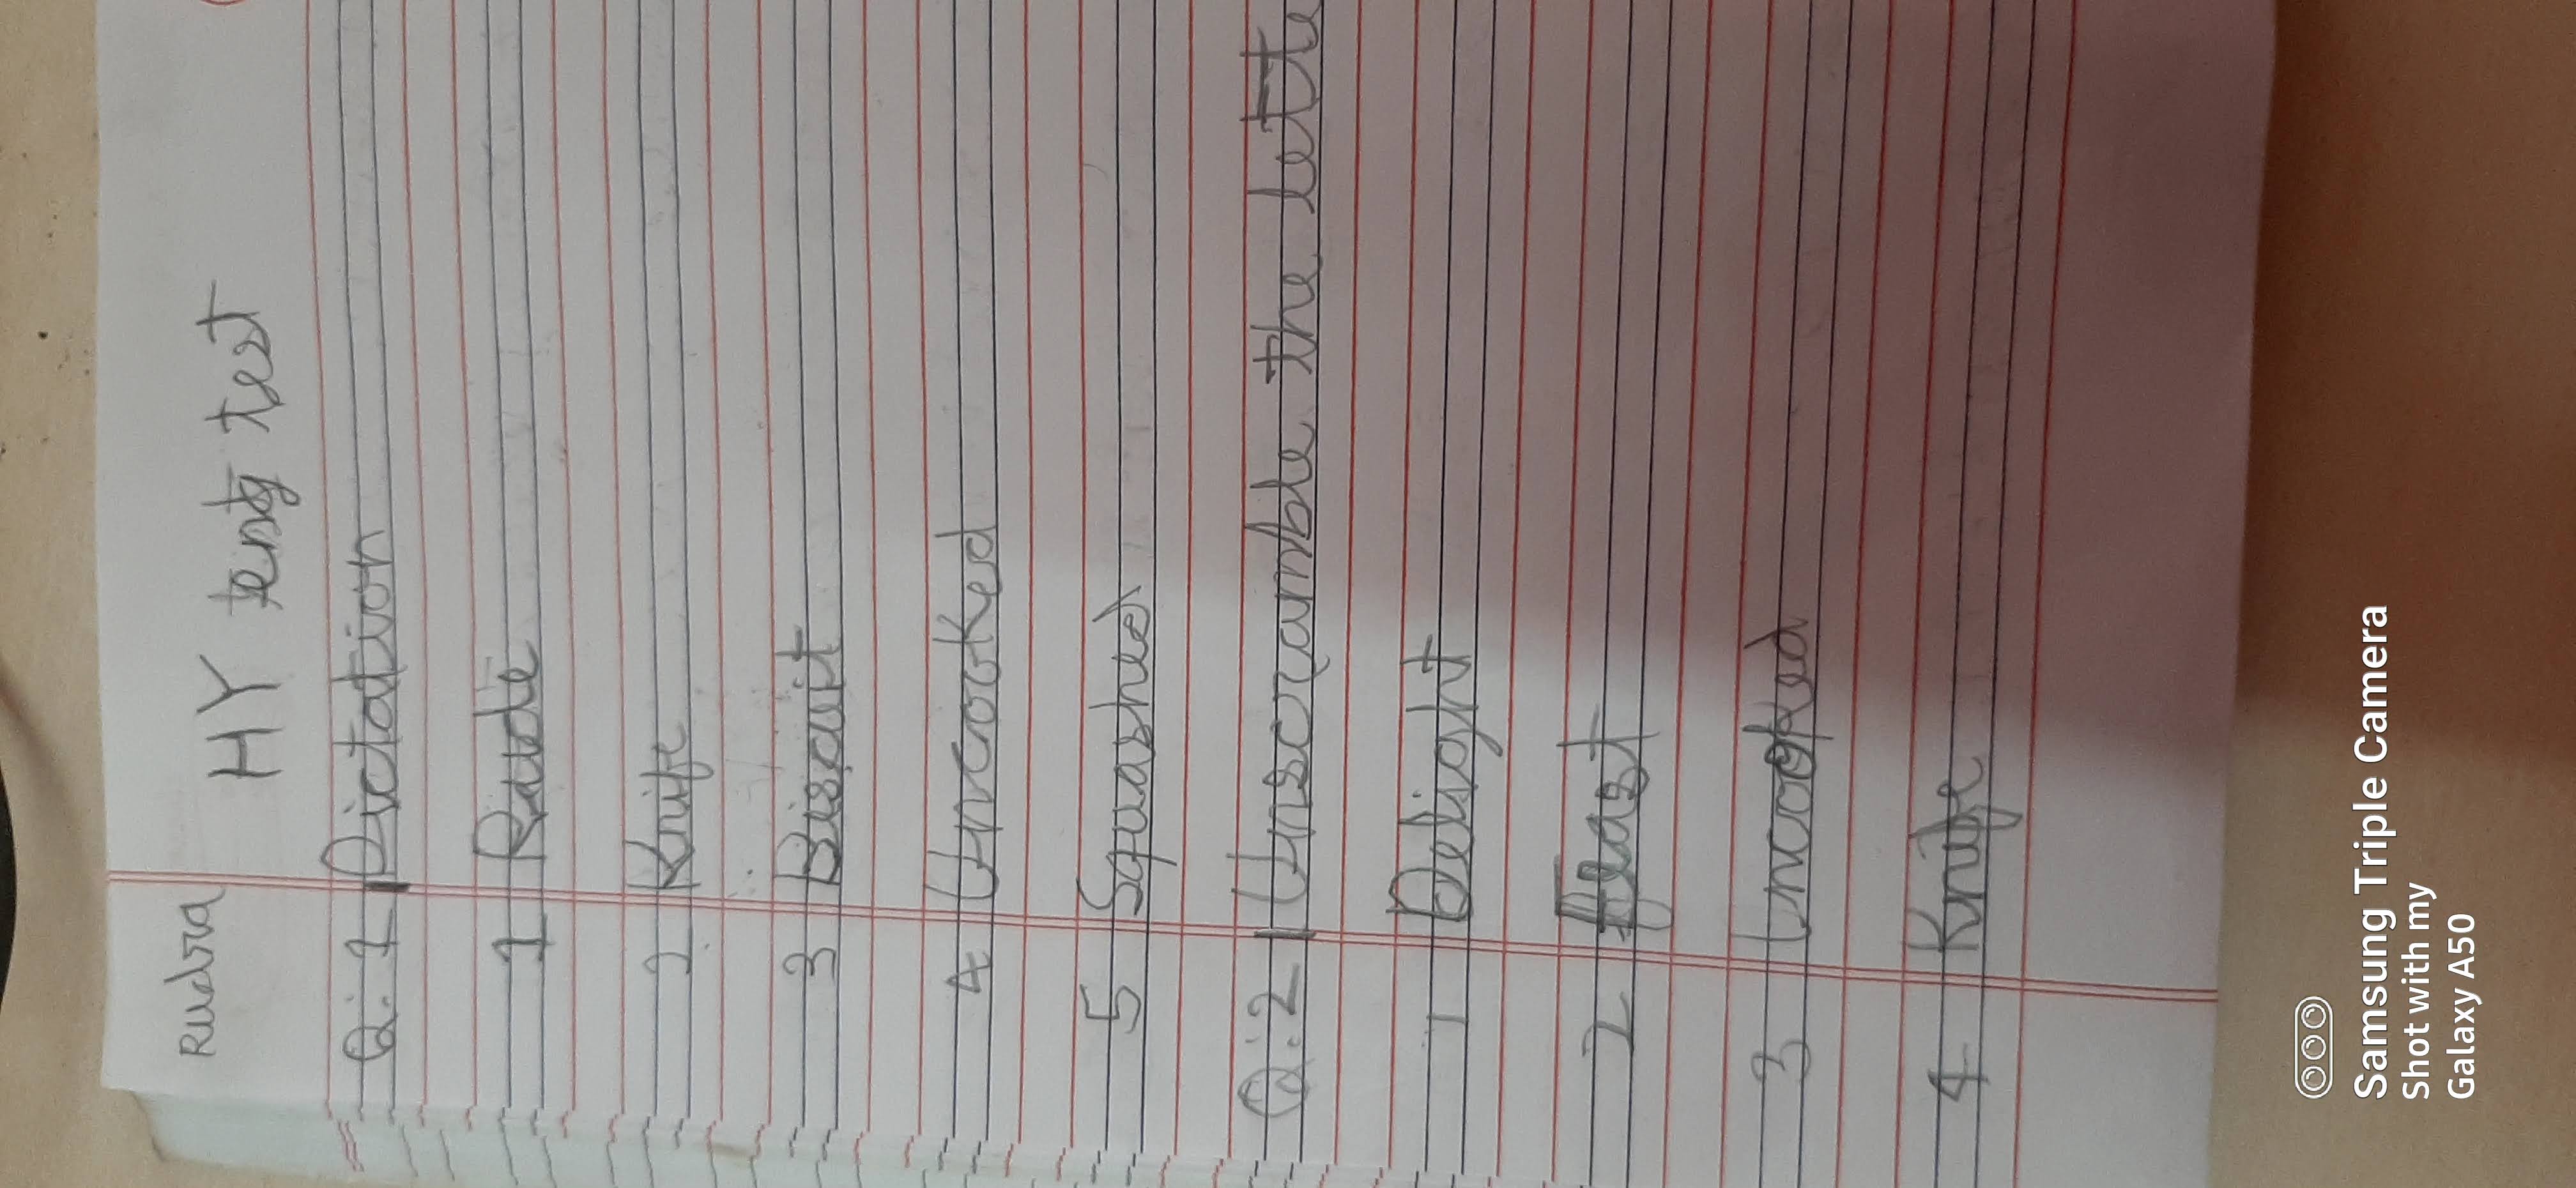 Rudra
HY test
Q.1 Dictation
1 Rude
2 Knife
3 Biscuit
4 Uncooked
5 Squashed
Q.2 Unscramble the lette
1 Delight
2 Feast
3 Uncooked
4 Knife
Samsung Triple Camera
Shot with my
Galaxy A50